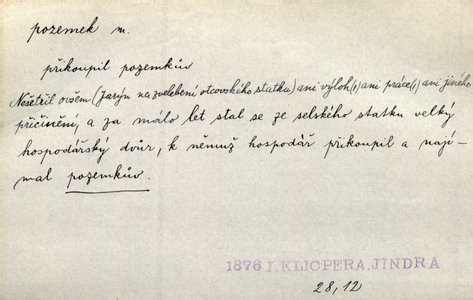 pozemek m.
přikoupil pozemkův
Nešetřil ovšem (Jarýn na zvelebení otcovského statku) ani výloh(,) ani práce(,) ani jiného
přičinění, a za málo let stal se ze selského statku velký
hospodářský dvůr, k němuž hospodář přikoupil a nají-
mal pozemkův.
1876 I, KLICPERA, JINDRA
28, 12